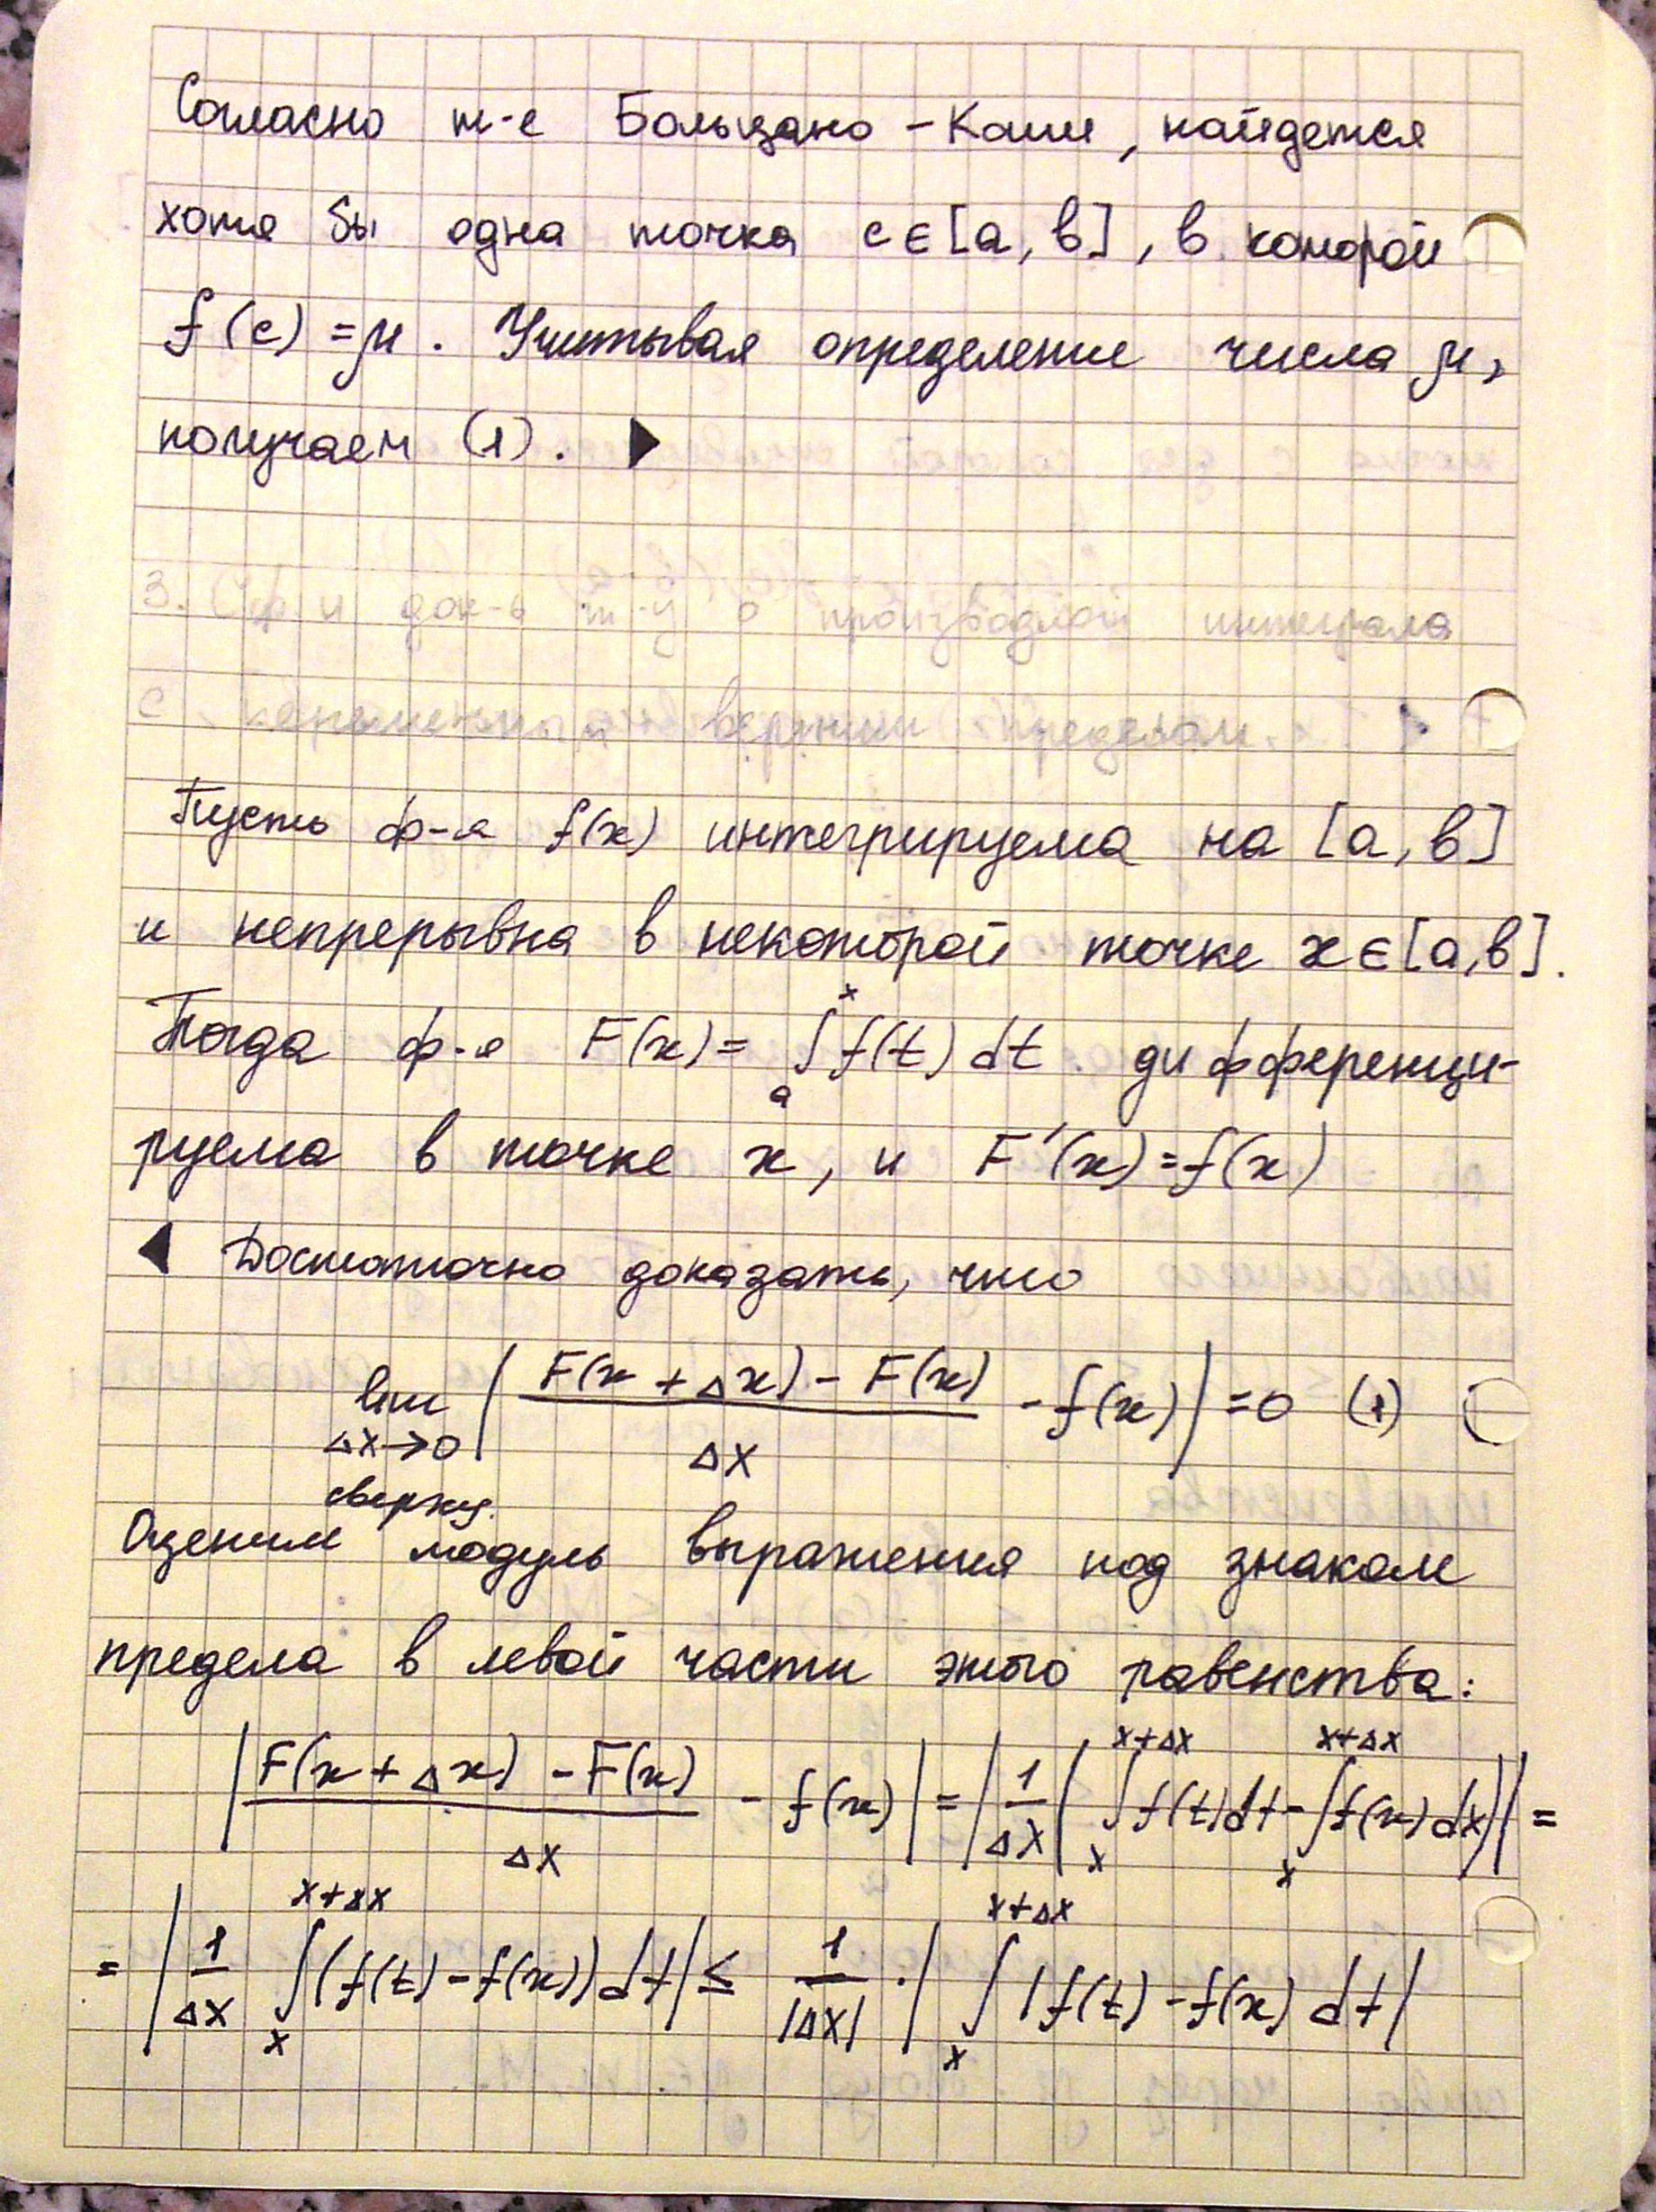 Согласно т-е Больцано - Коши, найдется
хотя бы одна точка c ∈ [a, b], в которой
f(c) = μ. Учитывая определение числа μ,
получаем (1). ▶
3. Сф. и док-ь т-у о производной интеграла
с переменным верхним пределом.
Пусть ф-я f(x) интегрируема на [a, b]
и непрерывна в некоторой точке x ∈ [a, b].
Тогда ф-я F(x) = ∫ₐˣ f(t) dt дифференци-
руема в точке x, и F'(x) = f(x)
◀ Достаточно доказать, что
lim Δx→0 | (F(x + Δx) - F(x)) / Δx - f(x) | = 0 (1)
сверху.
Оценим модуль выражения под знаком
предела в левой части этого равенства:
| (F(x + Δx) - F(x)) / Δx - f(x) | = | 1/Δx ( ∫ₓ^(x+Δx) f(t) dt - ∫ₓ^(x+Δx) f(x) dx ) | =
= | 1/Δx ∫ₓ^(x+Δx) (f(t) - f(x)) dt | ≤ 1/|Δx| · | ∫ₓ^(x+Δx) | f(t) - f(x) dt |